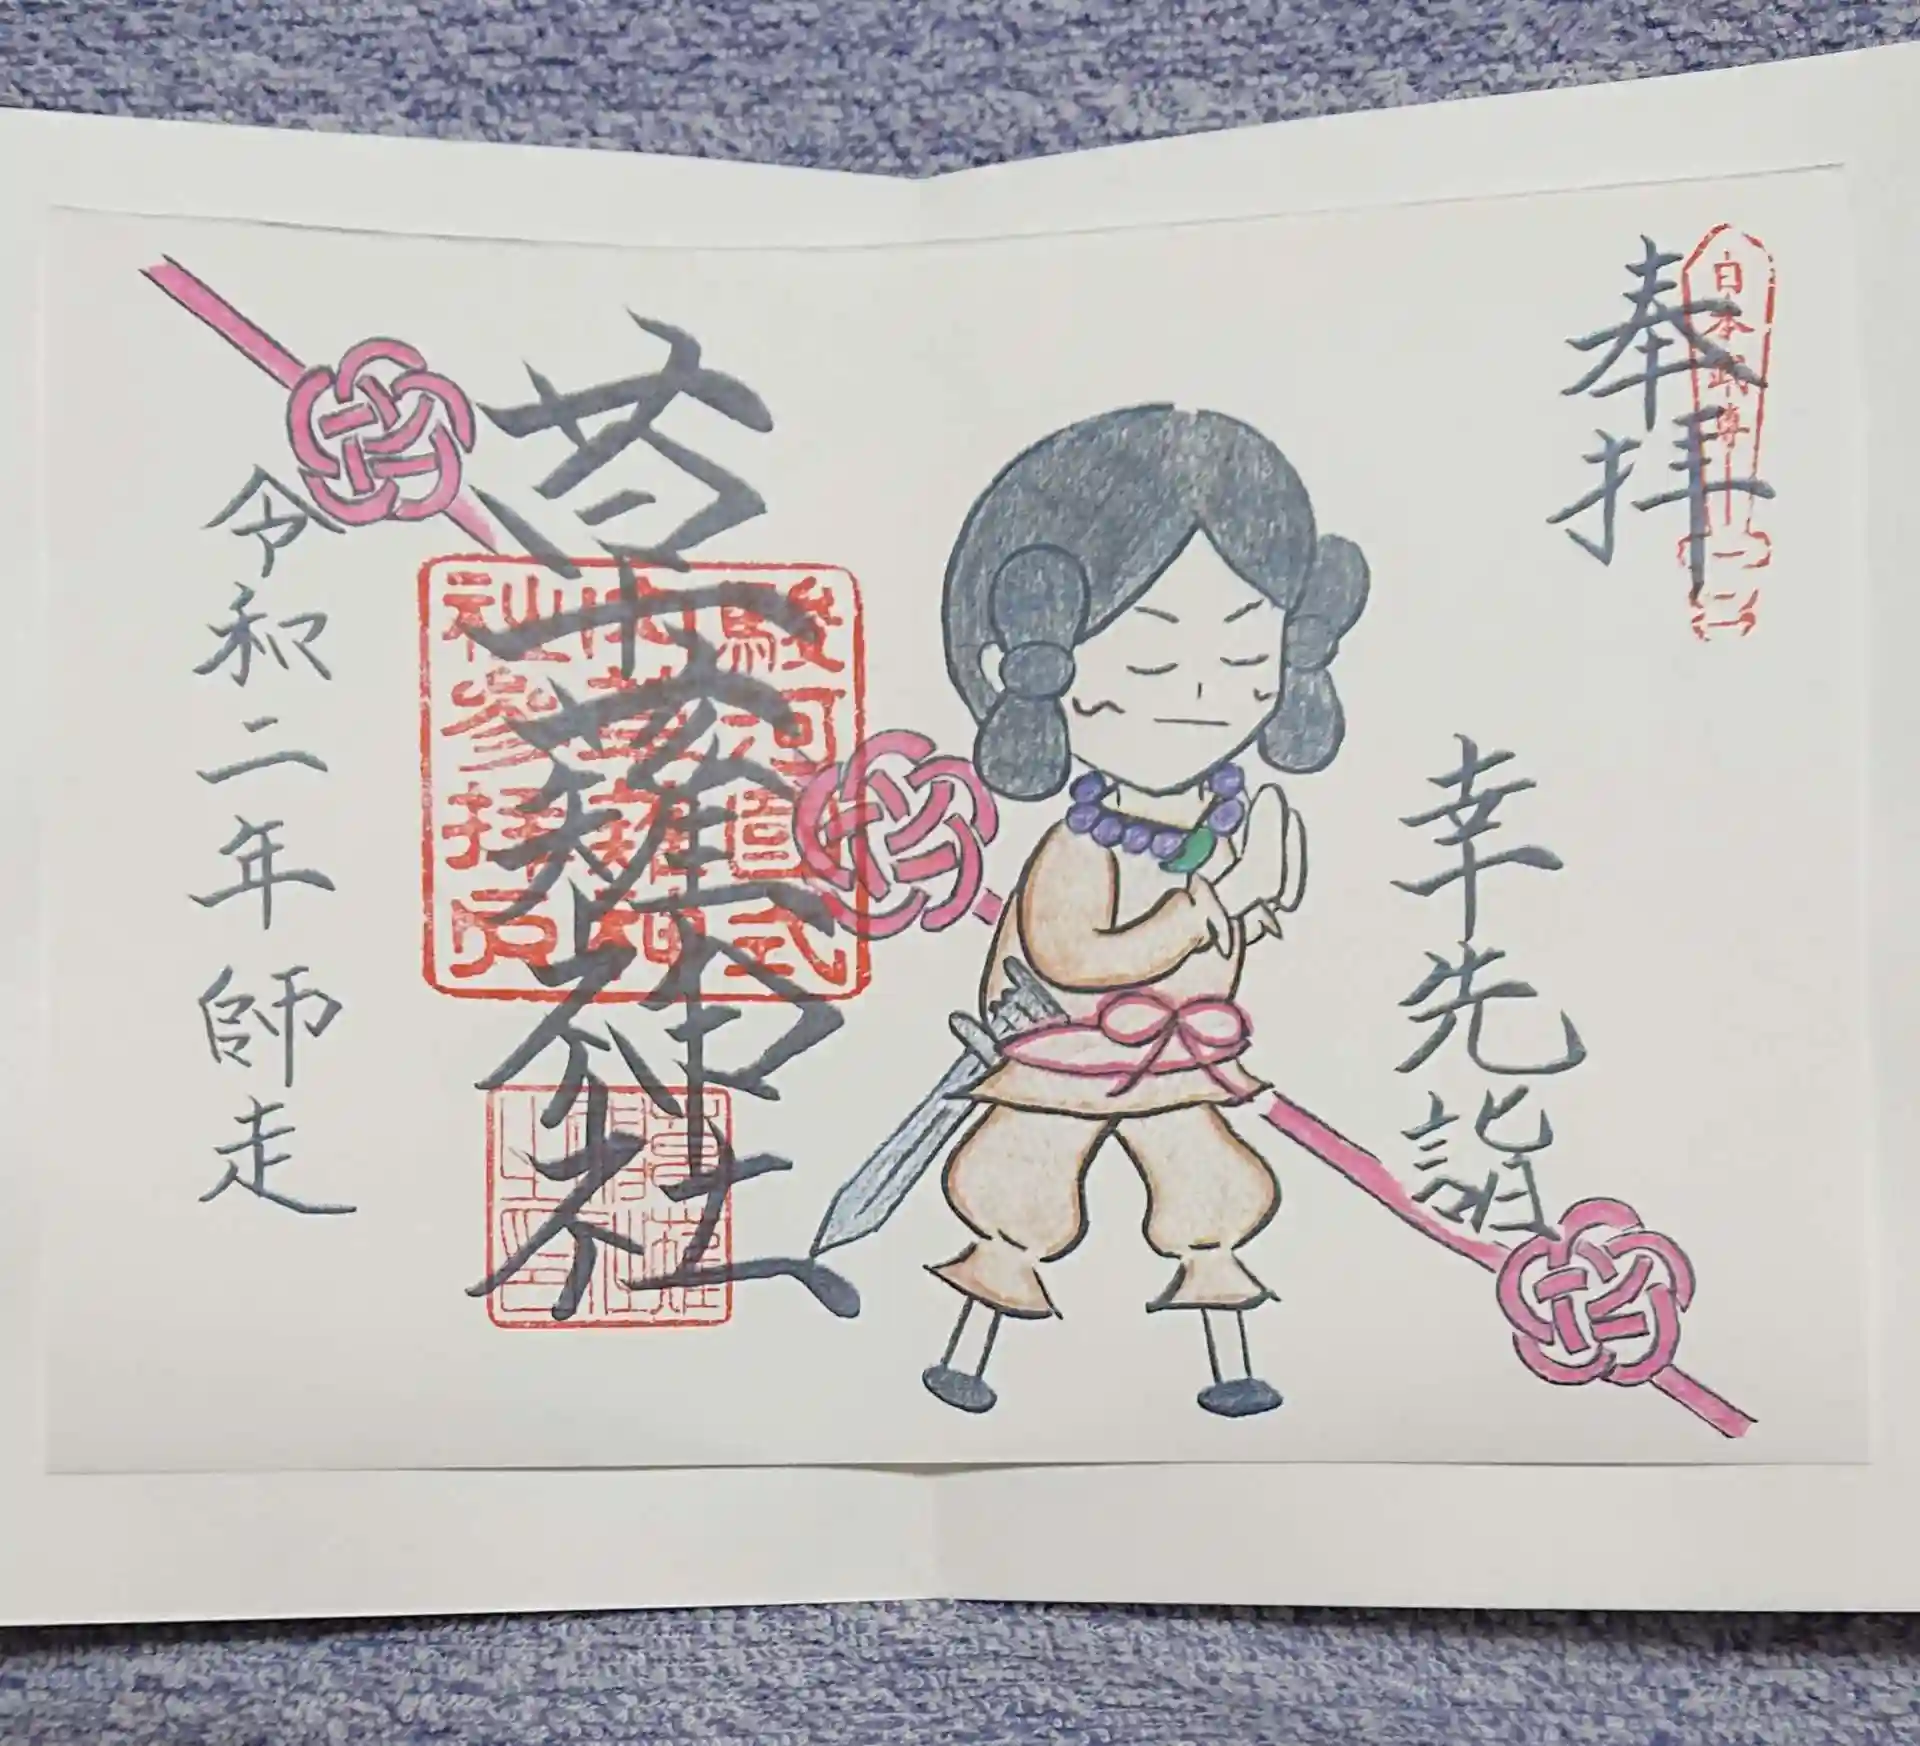 日本武尊
奉拝
幸先詣
草薙神社
駿河國式
内草薙神
社參拝
草薙
神社
之印
令和二年師走